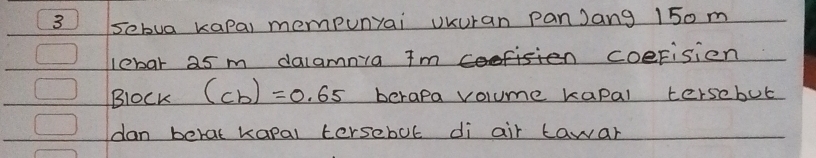 3 Sebua kapal mempunyai ukuran panjang 150 m
lebar 25 m dalamnya 7m coefisien coefisien
Block (cb) = 0.65 berapa volume kapal tersebut
dan berat kapal tersebut di air tawar